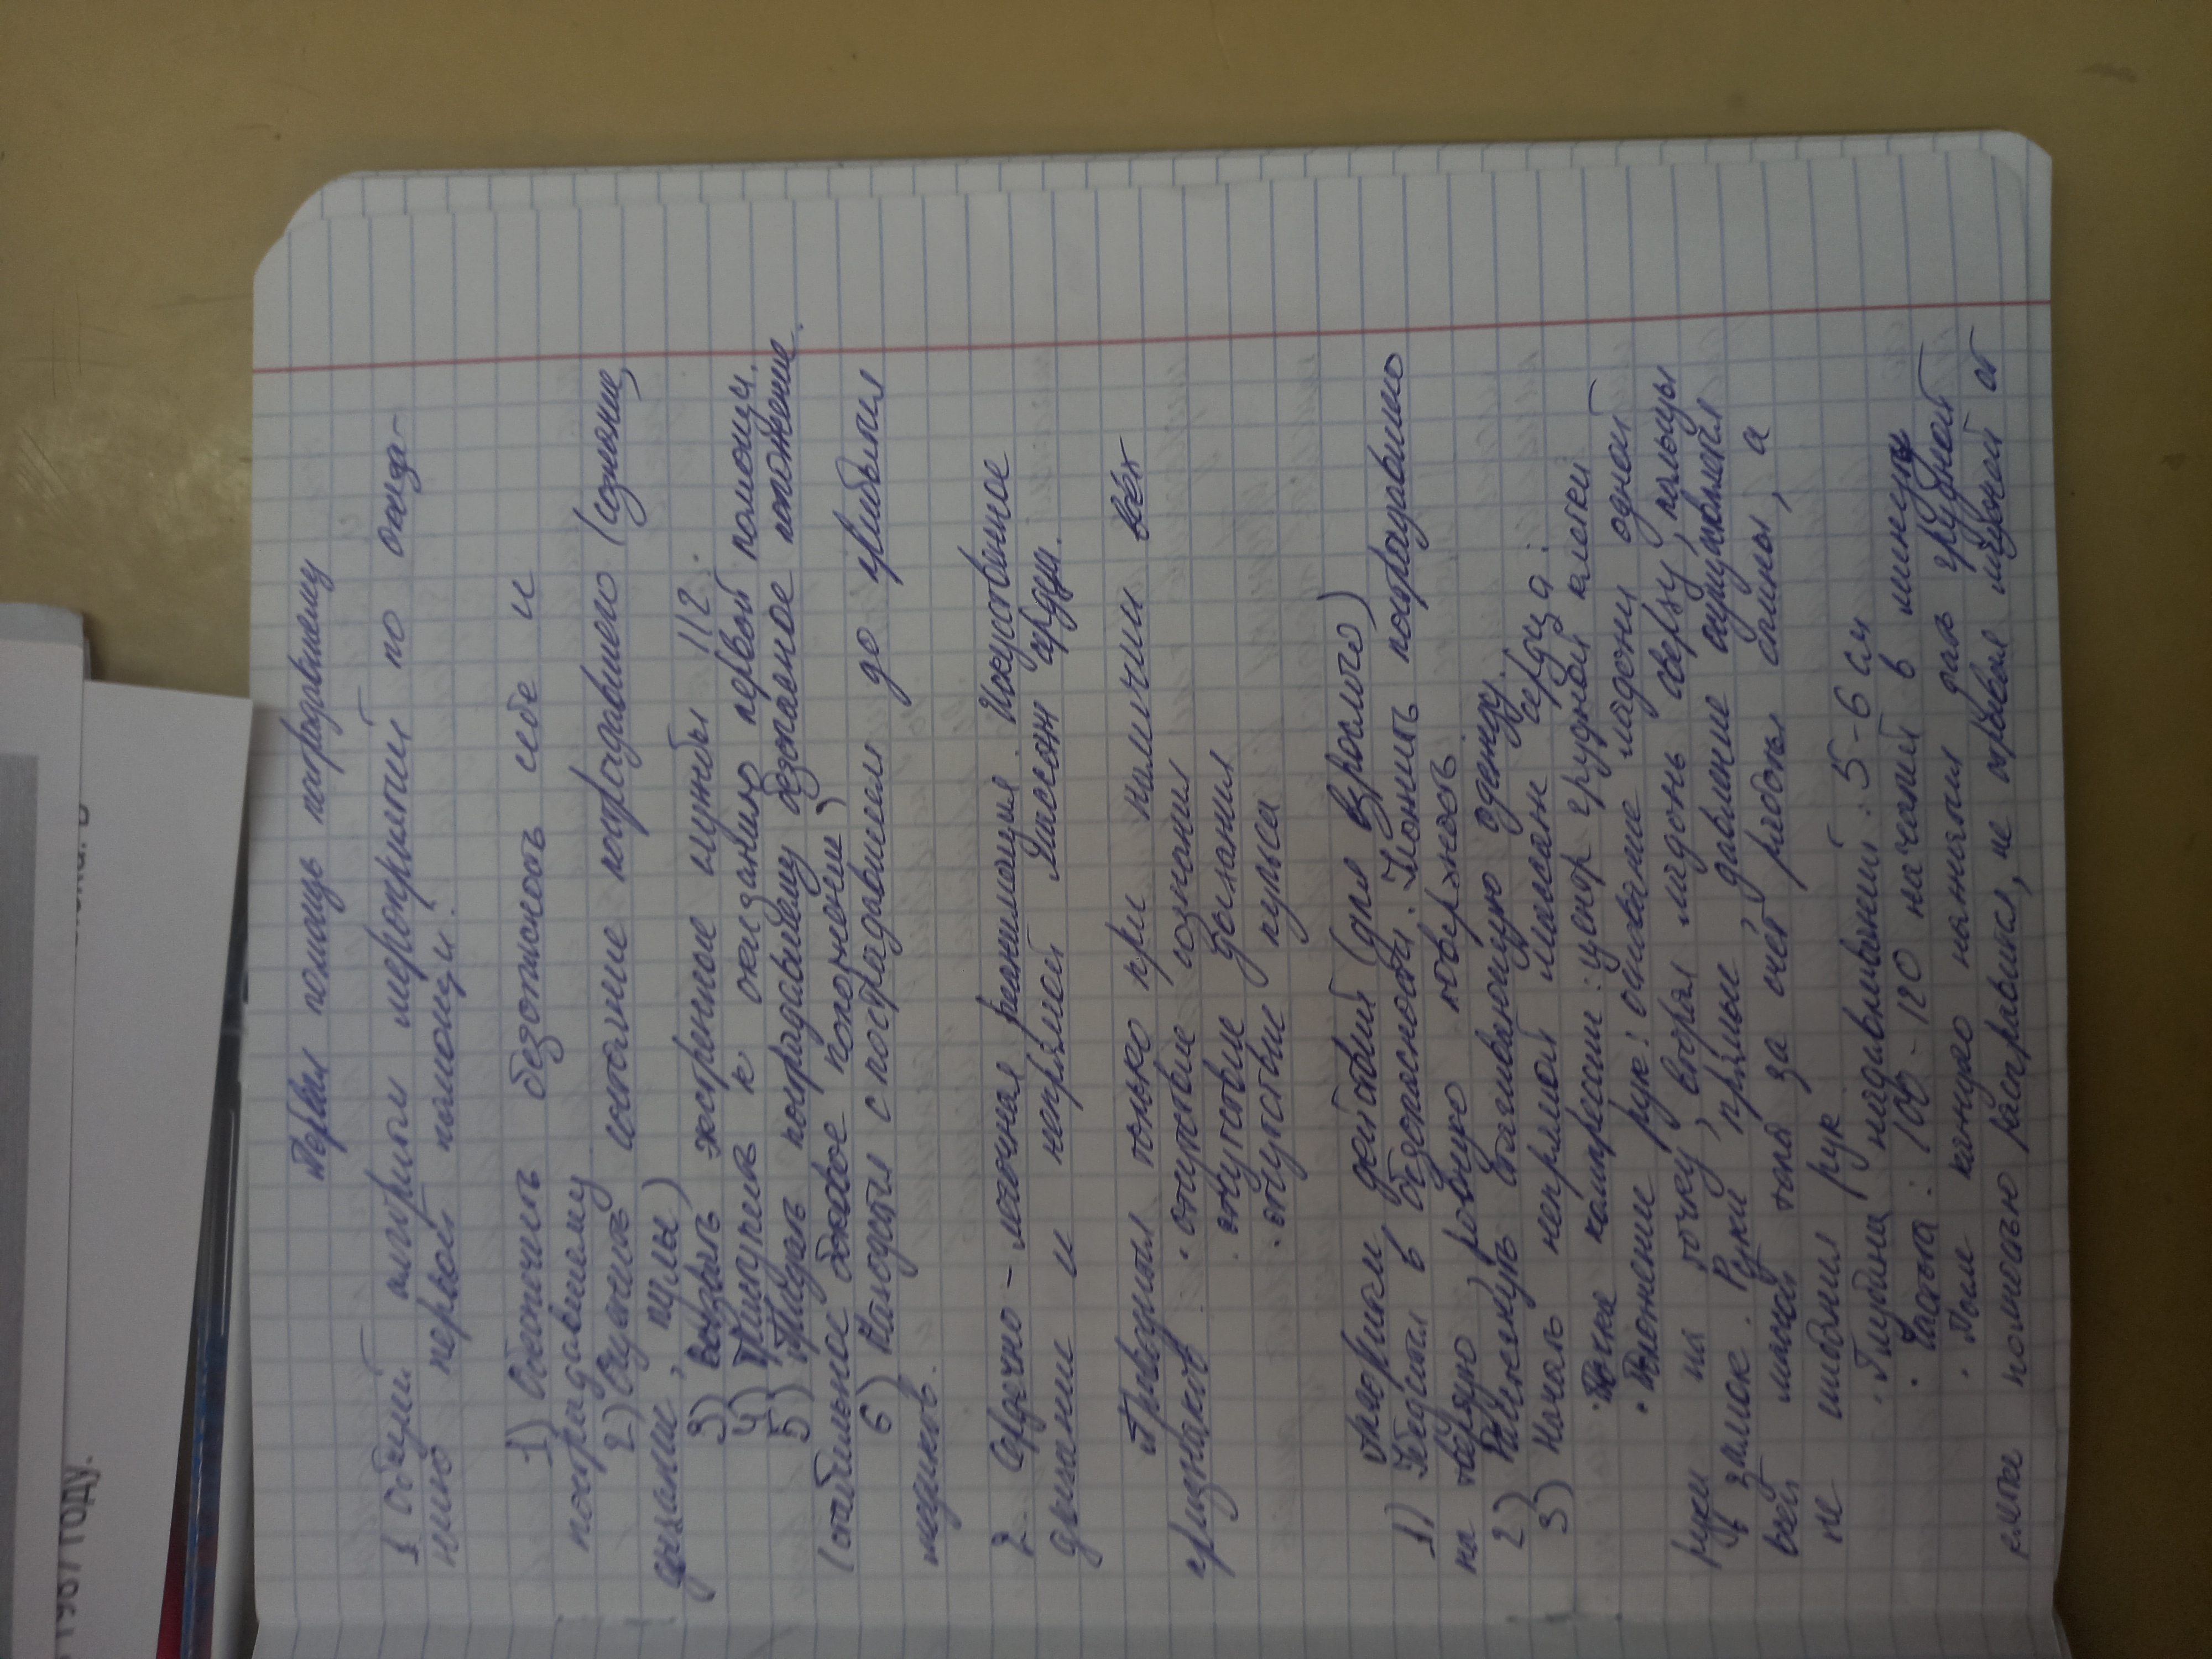 Первая помощь пострадавшему
1 Общий алгоритм мероприятий по оказа-
нию первой помощи:
1) Обеспечить безопасность себе и
пострадавшему
2) Оценить состояние пострадавшего (сознание,
дыхание, пульс)
3) Вызвать экстренные службы 112.
4) Приступить к оказанию первой помощи.
5) Придать пострадавшему безопасное положение.
(стабильное боковое положение)
6) Находится с пострадавшим до прибытия
медиков.
2. Сердечно-легочная реанимация. Искуственное
дыхание и непрямой массаж сердца.
Проводится только при наличии всёх
признаков: · отсутствие сознания
· отсутствие дыхания
· отсутствие пульса
Алгоритм действий (для взрослого)
1) Убедится в безопасности. Положить пострадавшего
на твёрдую ровную поверхность
2) Расстегнуть стягивающую одежду.
3) Начать непрямой массаж сердца:
· Точка компрессии: центр грудной клетки
· Положение рук: основание ладони одной
руки на точку, вторая ладонь сверху, пальцы
в замок. Руки прямые, давление осуществляется
всей массой тела за счёт работы спины, а
не сгибания рук
· Глубина надавливаний: 5-6 см
· Частота: 100-120 нажатий в минуту
· После каждого нажатия дать грудной
клетке полностью расправится, не отрывая ладоней от
1987 году.